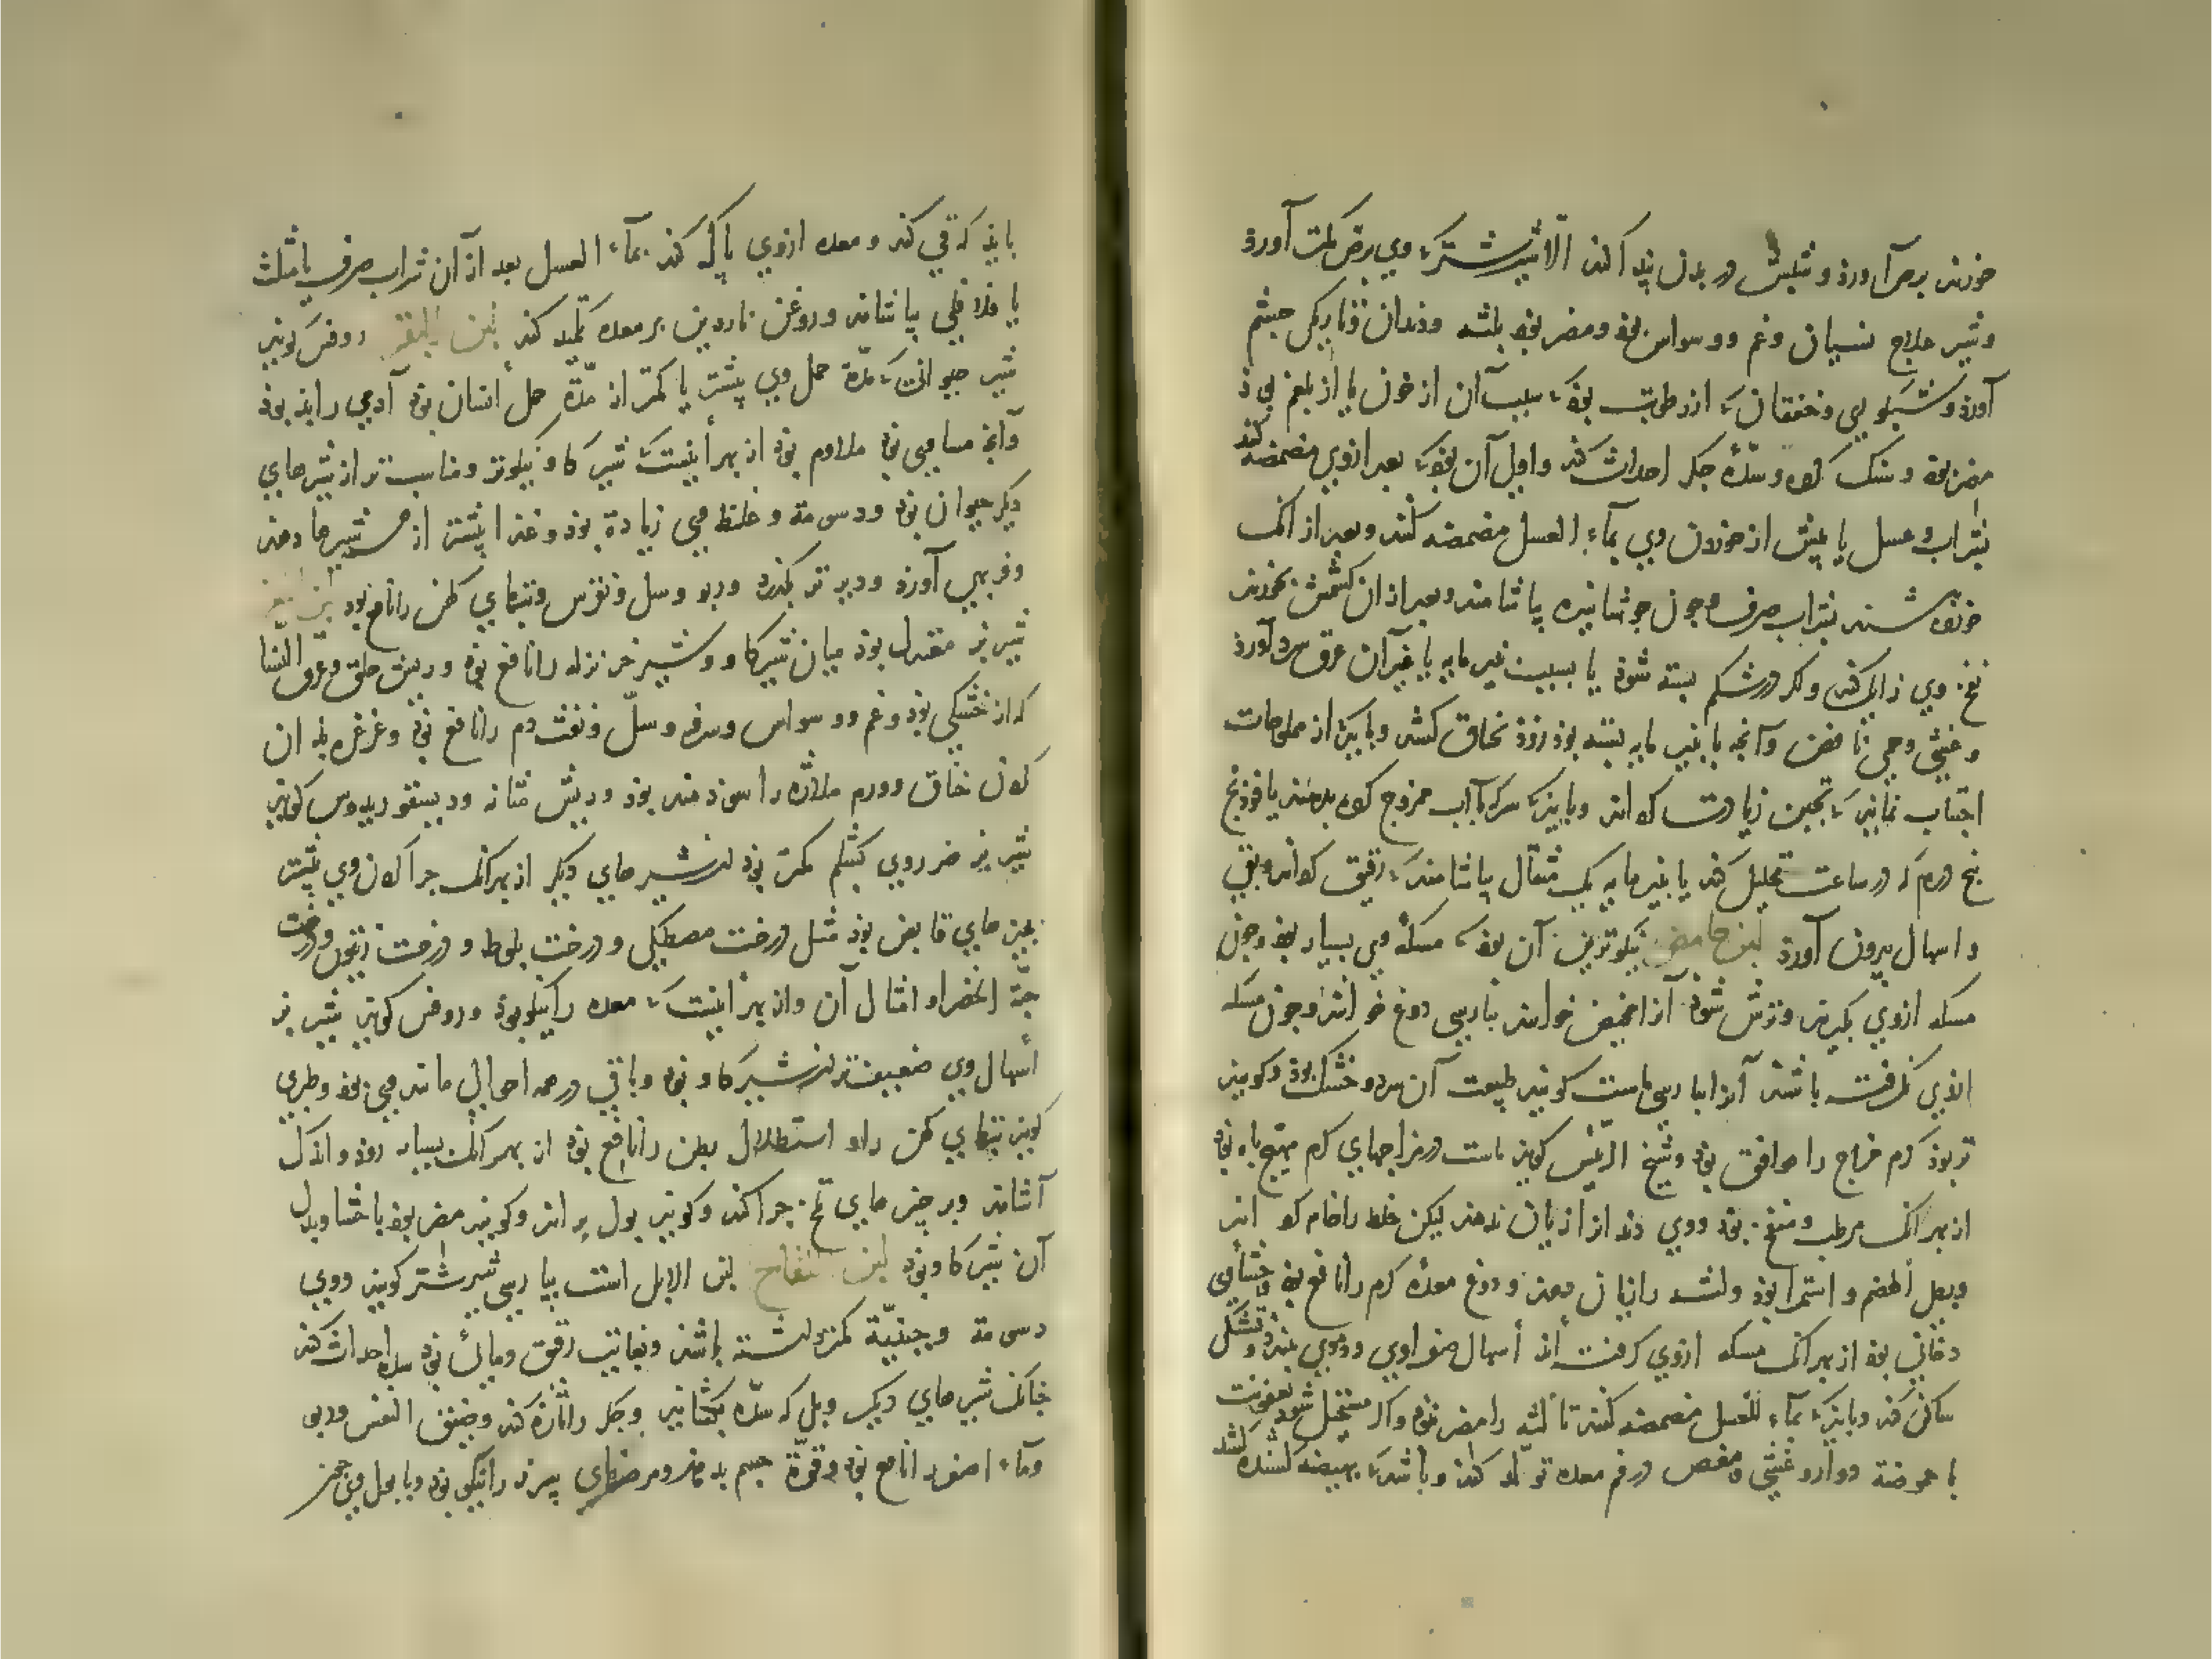 خورند برص آورد و شپش در بدن پیدا کند الا شیر شتر که وی برص کمتر آورد
و شیر علاج نسیان و غم و وسواس بود و مضر بود بلثه و دندان و تاریکی چشم
آورد و شبکوری و خفقان که از رطوبت بود سبب آن از خون یا از بلغم
مضر بود و سنک کرده و سده جکر احداث کند و اولی آن بود که بعد ازوی مضمضه کنند
بشراب و عسل یا پیش از خوردن وی بماء العسل مضمضه کنند و بعد از آنک
خورده باشند شراب صرف و چون جوشانیده بیاشامند و بعد از آن کشمش بخورند
نفخ وی زایل کند و کر در شکم بسته شود یا بسبب پنیر مایه یا غیر آن عرق سرد آورد
و غشی و حمی نافض و آنچه با پنیر مایه بسته بود زود بخناق کشد و باید که از ملوحات
اجتناب نمایند که تجبین زیادت کرداند و باید که سرکه با آب ممزوج کرده بدهند یا فودنج
پنج درم که در ساعت تحلیل کند یا پنیر مایه یک مثقال بیاشامند که رقیق کرداند و بقی
و اسهال بیرون آورد لبن حامض نیکوترین آن بود که مسکه وی بسیار بود و چون
مسکه ازوی بکیرند و ترش شود آنرا مخیض خوانند بپارسی دوغ خوانند و چون مسکه
ازوی نکرفته باشند آنرا بپارسی ماست کویند طبیعت آن سرد و خشک بود و کویند
تر بود کرم مزاج را موافق بود و شیخ الرئیس کوید ماست در مزاجهای کرم مهیج باه بود
از بهر آنک مرطب و منفخ بود و وی دندان را زیان ندهد لیکن خلط را خام کرداند
و بطی الهضم و استمرا بود و لثه را زیان دهد و دوغ معده کرم را نافع بود و جشأ وی
دخانی بود از بهر آنک مسکه ازوی کرفته اند اسهال صفراوی و دموی ببندد و تشنکی
ساکن کند و باید که بماء العسل مضمضه کنند تا لثه را مضر نبود و اکر مستحیل شود بعفونت
با حموضة دوار و غشی و مغص در فم معده تولد کند و باشد که بهیضه کشنده کشد
باید که قی کند و معده ازوی پاک کند بماء العسل بعد از آن شراب صرف یا مثلث
یا فلافلی بیاشامند و روغن ناردین بر معده تکمید کند لبن البقر روفس کوید
شیر حیوانی که مدة حمل وی بیشتر یا کمتر از مدة حمل انسان بود آدمی را بد بود
و آنچه مساوی بود ملایم بود از بهر اینست که شیر کاو نیکوتر و مناسب تر از شیرهای
دیکر حیوان بود و دسومة و غلظ وی زیادة بود و غذا بیشتر از همه شیرها دهد
و فربهی آورد و دیرتر بکذرد و ربو و سل و نقرس و تبهای کهن را نافع بود لبن المعز
شیر بز معتدل بود میان شیر کاو و شیر خر نزله را نافع بود و ریش حلق و عرق النسا
که از خشکی بود و غم و وسواس و سرفه و سل و نفث دم را نافع بود و غرغره بدان
کردن خناق و ورم ملازه را سودمند بود و ریش مثانه و دیسقوریدوس کوید
شیر بز ضرر وی بشکم کمتر بود از شیرهای دیکر از بهر آنک چرا کردن وی بیشتر
بچیزهای قابض بود مثل درخت مصطکی و درخت بلوط و درخت زیتون و درخت
حبة الخضرا و امثال آن و از بهر اینست که معده را نیکو بود و روفس کوید شیر بز
اسهال وی ضعیفتر از شیر کاو بود و باقی در همه احوال مانند وی بود و طبری
کوید تبهای کهن را و استطلاق بطن را نافع بود از بهر آنک بسیار رود و اندک
آشامد و بر چیزهای تلخ چرا کند و کویند بول براند و کویند مضر بود باحشا و بدل
آن شیر کاو بود لبن اللقاح لبن الابل است بپارسی شیر شتر کویند و وی
دسومة و جبنیة کمتر داشته باشد و بغایت رقیق و مائی بود سده احداث نکند
چنانک شیرهای دیکر و بل که سده بکشاید و جکر را تازه کند و ضیق النفس و ربو
و ماء اصفر را نافع بود و قوة جسم بدهد و مرضهای سپرز را نیکو بود و با بول وی چون